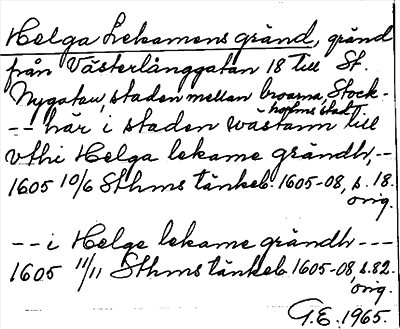 Helga Lekamens gränd, gränd
från Västerlånggatan 18 till St.
Nygatan, staden mellan broarna, Stock-
holms stad
-- här i staden wästann till
vthi Helga lekame grändh, --
1605 10/6 Sthms tänkeb. 1605-08, s. 18.
orig.
-- i Helge lekame grändh ---
1605 11/11 Sthms tänkeb. 1605-08, s. 82.
orig.
G.E. 1965.